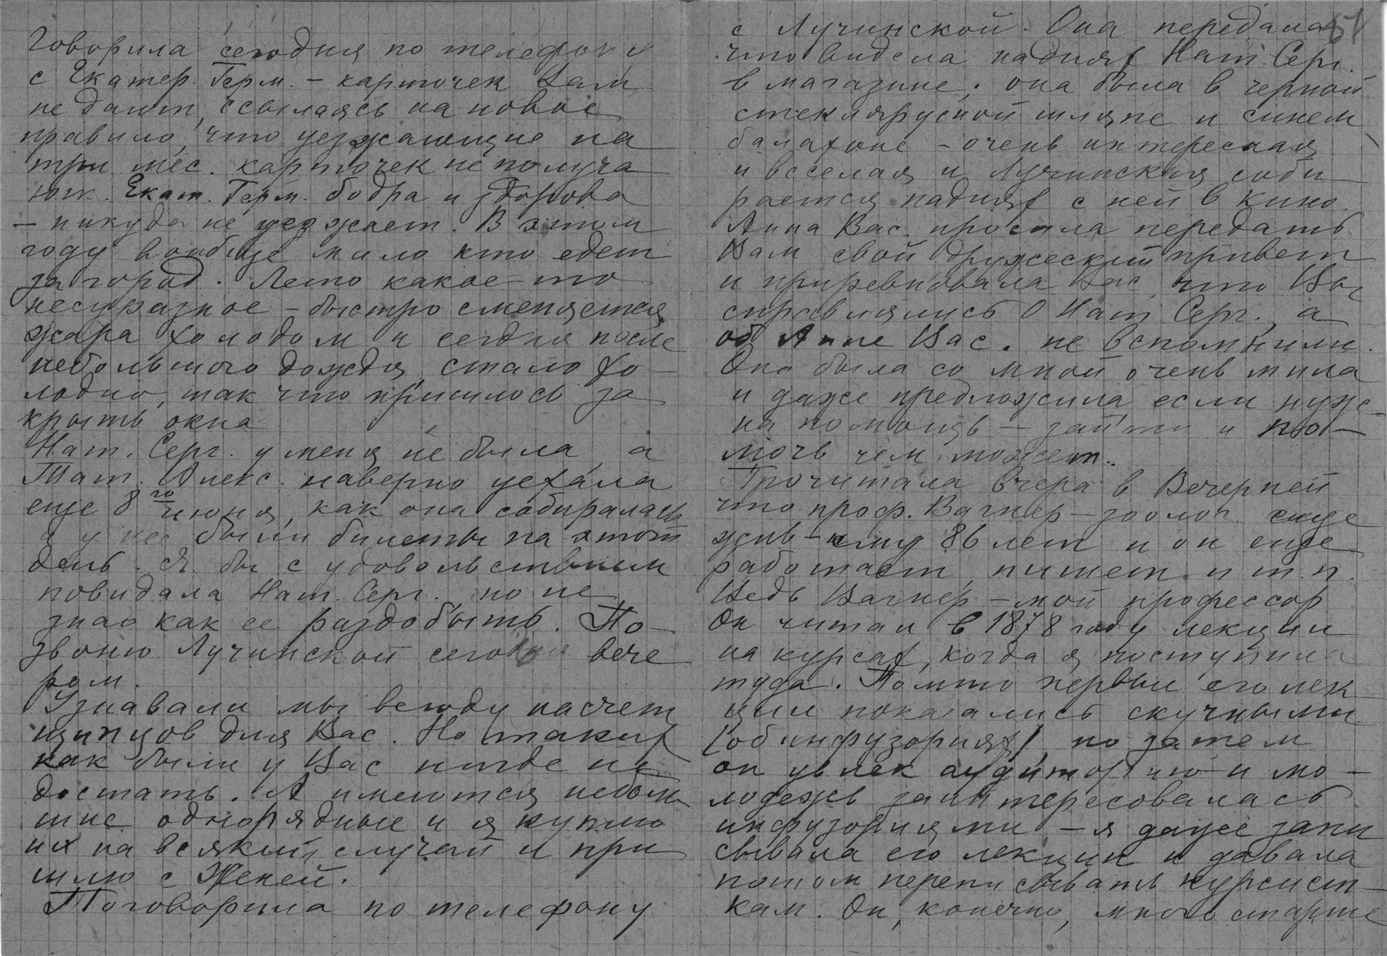 Говорила сегодня по телефону
с Екатер. Герм. – карточек Вам
не дают, ссылаясь на новое
правило, что уезжающие на
три мес. карточек не получа
ют. Екат. Герм. бодра и здорова
– никуда не уезжает. В этом
году вообще мало кто едет
за город. Лето какое то
несуразное – быстро сменяется
жара холодом и сегодня после
небольшого дождя стало хо–
лодно, так что пришлось за
крыть окна
Нат. Серг. у меня не была а
Тат. Алекс. наверно уехала
еще 8го июня, как она собиралась
а у нее были билеты на этот
день. Я бы с удовольствием
повидала Нат. Серг. но не
знаю как ее раздобыть. По–
звоню Лучинской сегодня вече
ром.
Узнавали мы всюду насчет
щипцов для Вас. Но таких
как были у Вас нигде не
достать. А имеются неболь
шие однорядные и я куплю
их на всякий случай и при
шлю с Женей.
Поговорила по телефону
51
с Лучинской. Она передала
что видела на днях Нат. Серг.
в магазине. она была в черной
стеклярусной шляпе и синем
балахоне – очень интересная
и веселая и Лучинская соби
рается на днях с ней в кино.
Анна Вас. просила передать
Вам свой дружеский привет
и приревновала Вас, что Вы
справлялись о Нат Серг., а
об Анне Вас. не вспомнили.
Она была со мной очень мила
и даже предложила если нуж–
на помощь – зайти и по–
мочь чем может.
Прочитала вчера в Вечерней
что проф. Вагнер – зоолог еще
жив – ему 86 лет и он еще
работает, пишет и т.п.
Ведь Вагнер – мой профессор
Он читал в 1878 году лекции
на курсах, когда я поступила
туда. Помню первые его лек
ции показались скучными
(об инфузориях), но затем
он увлек аудиторию и мо–
лодежь заинтересовалась
инфузориями – я даже запи
сывала его лекции и давала
потом переписывать курсист–
кам. Он, конечно, много старше